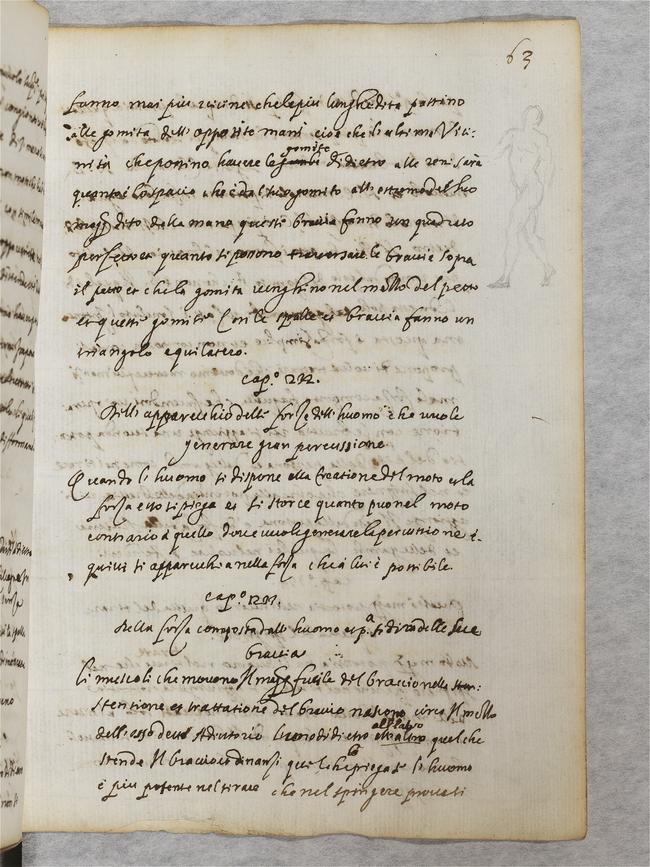 63
fanno mai piu vicine che le piu lunghe dita passino
alle gomita dell opposito mani cioe che li ulti ma Vici:
nita che possino havere le gomite di dietro alle reni sara
quanto è lo spacio che è dal suo gomito all estremo del suo
magg. dito della mano queste braccia fanno un quadrato
perfetto et quanto si possono traversare le braccie sopra
il petto et che la gomita venghino nel mezzo del petto
et queste gomite con le spalle et braccia fanno un
triangolo equilatero.
cap.º
Dell apparecchio della forza dell huomo che vuole
generare gran percussione
Quando l huomo si dispone alla creatione del moto con la
forza esso si piega et si storce quanto puo nel moto
contrario à quello dove vuole generare la percussione è
quivi si apparecchia nella forza che à lui è possibile.
cap.º
Della forza composta dall huomo et p.ª si dira delle sue
braccia
li muscoli che movono Il magg. fucile del braccio nella
stentione et trattatione del braccio nascono circa Il mezzo
dell osso detto Adiutorio l uno di dietro all altro quel che
stende Il braccio e dinansi quel che lo piega se l huomo
è piu potente nel tirare che nel spingere provasi